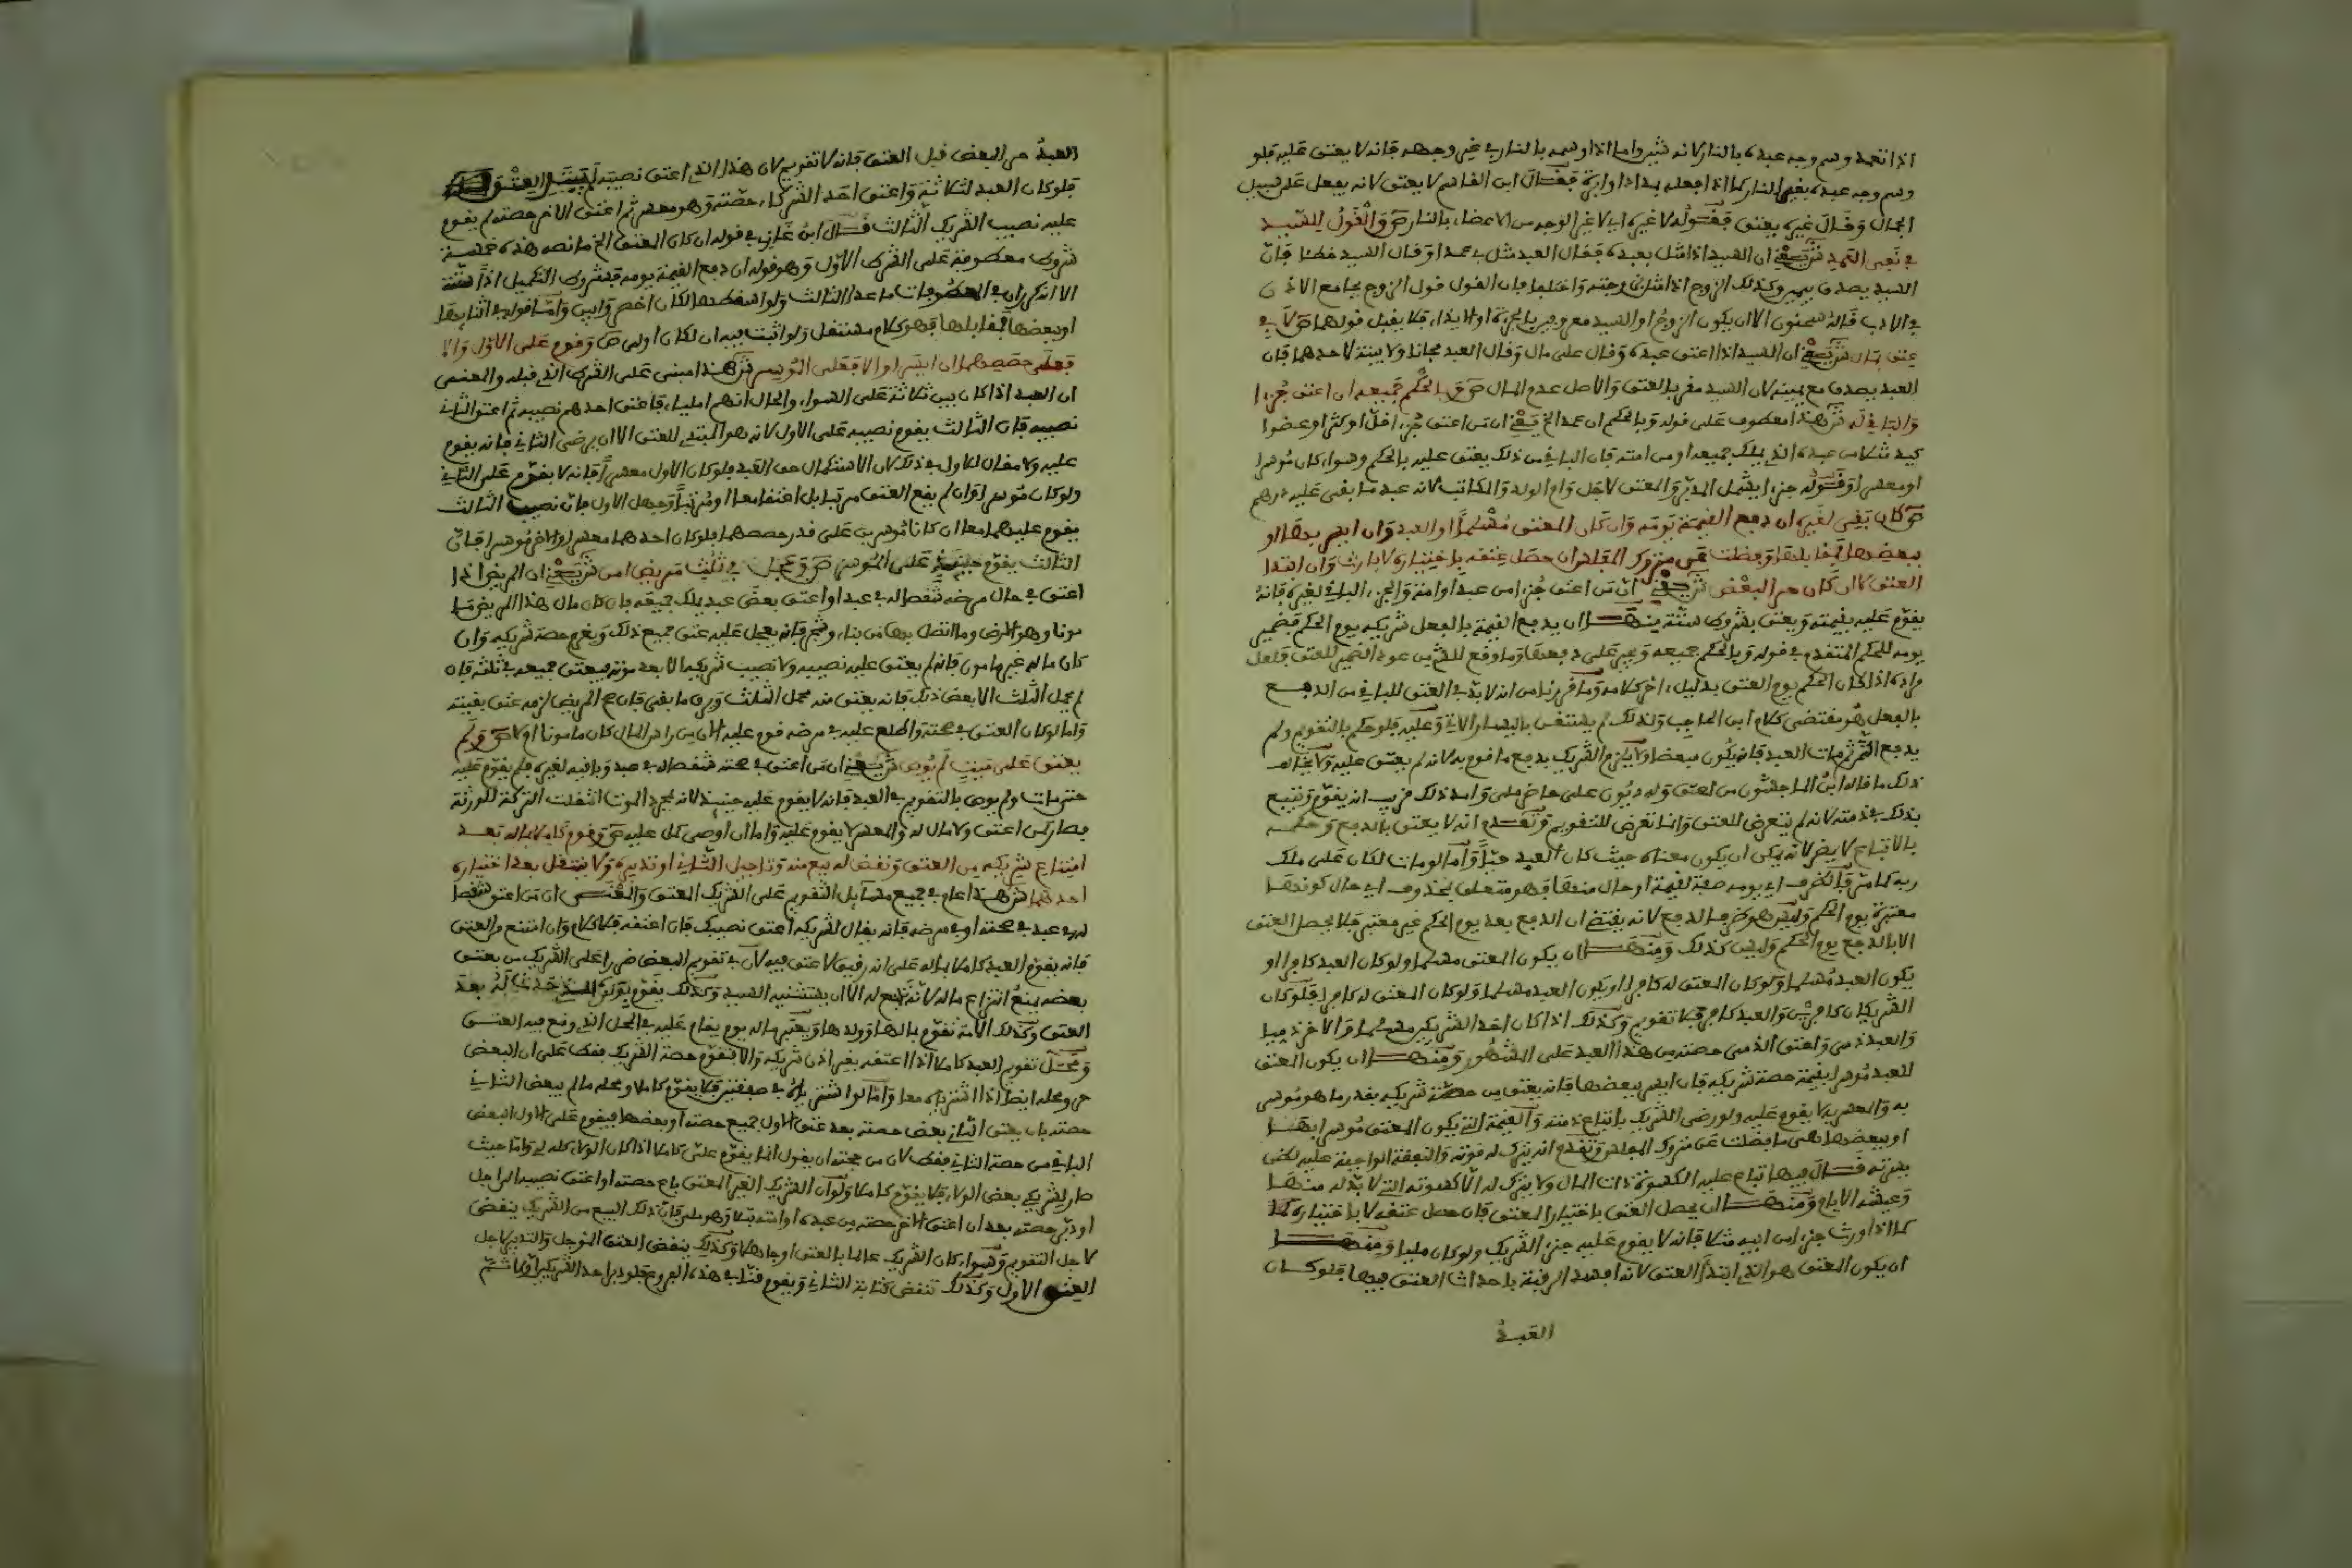 اذا تعمد وسم وجه عبده بالنار لانه شين واما اذا وسمه بالنار في غير وجهه فانه لا يعتق عليه فلو
وسم وجه عبده بغير النار كما اذا فعله بمداد او ابرة فقال ابن القاسم لا يعتق لانه يفعل على سبيل
الجمال وقال غيره يعتق فقوله لا غيره اي لا غير الوجه من الاعضاء بالنار ص والقول للسيد
في نفي العمد ش يعني ان السيد اذا مثل بعبده فقال العبد مثل بي عمدا وقال السيد خطا فان
السيد يصدق بيمين وكذلك الزوج اذا مثل بزوجته واختلفا فان القول قول الزوج بجامع الاذن
في الادب قاله سحنون الا ان يكون الزوج او السيد معروفين بالجرءة والايذاء فلا يقبل قولهما ص لا في
عتق بمال ش يعني ان السيد اذا اعتق عبده وقال على مال وقال العبد مجانا ولا بينة لاحدهما فان
العبد يصدق مع يمينه لان السيد مقر بالعتق والاصل عدم المال ص وبالحكم جميعه ان اعتق جزءا
والباقي له ش هذا معطوف على قوله وبالحكم ان عمد الخ يعني ان من اعتق جزءا قل او كثر او عضوا
كيد مثلا من عبده الذي يملك جميعه او من امته فان الباقي من ذلك يعتق عليه بالحكم وسواء كان موسرا
او معسرا وقوله جزءا يشمل المدبر والمعتق لاجل وام الولد والمكاتب لانه عبد ما بقي عليه درهم
ص كان بقي لغيره ان دفع القيمة يومه وان كان المعتق مسلما او العبد وان ايسر بها او
ببعضها فمقابلها وفضلت عن متروك المفلس وان حصل عتقه باختياره لا بارث وان ابتدا
العتق لا ان كان حر البعض ش يعني ان من اعتق جزءا من عبد او امة والجزء الباقي لغيره فانه
يقوم عليه بقيمته ويعتق بشروط ستة منها ان يدفع القيمة بالفعل شريكه يوم الحكم فضمير
يومه للحكم المتقدم في قوله وبالحكم جميعه وبهن على دفعها وما وقع للش من عود الضمير للعتق فلعل
مراده اذا كان الحكم يوم العتق بدليل اخر كلامه وما قررنا من انه لا بد في العتق للباقي من الدفع
بالفعل هو مقتضى كلام ابن الحاجب وكذلك لم يستغن باليسار الاتي وعليه فلو حكم بالتقويم ولم
يدفع الثمن ثم مات العبد فانه يكون مبعضا ولا يلزم الشريك بدفع ما قوم به لانه لم يعتق عليه ولا يخالف
ذلك ما قاله ابن الماجشون من اعتق وله ديون على حاضر ملي وامد ذلك قريب انه يقوم ويتبع
بذلك في ذمته لانه لم يتعرض للعتق وانما تعرض للتقويم وتقدم انه لا يعتق بالدفع وحكمه
بالاتباع لا يضر لانه يمكن ان يكون معناه حيث كان العبد حيا واما لو مات لكان على ملك
ربه كما مر فالظرف اي يومه صفة لقيمة او حال منها فهو متعلق بمحذوف اي حال كونها
معتبرة يوم الحكم وليس هو ظرف الدفع لانه يقتضي ان الدفع بعد يوم الحكم غير معتبر فلا يحصل العتق
الا بالدفع يوم الحكم وليس كذلك ومنها ان يكون المعتق مسلما ولو كان العبد كافرا او
يكون العبد مسلما ولو كان المعتق له كافرا او يكون العبد مسلما ولو كان المعتق له كافرا فلو كان
الشريكان كافرين والعبد كافر فلا تقويم وكذلك اذا كان احد الشريكين مسلما والاخر ذميا
والعبد ذمي واعتق الذمي حصته من هذا العبد على المشهور ومنها ان يكون المعتق
للعبد موسرا بقيمة حصة شريكه فان ايسر ببعضها فانه يعتق من حصة شريكه بقدر ما هو موسر
به والمعسر به لا يقوم عليه ولو رضي الشريك باتباع ذمته والقيمة التي يكون المعتق موسرا بها
او ببعضها هي ما فضلت عن متروك المفلس وتقدم انه يترك له قوته والنفقة الواجبة عليه لظن
يسرته قال فيها تباع عليه الكسوة ذات المال ولا يترك له الا كسوته التي لا بد له منها
وعيشه الايام ومنها ان يحصل العتق باختيار المعتق فان حصل عتقه لا باختياره كما
كما اذا ورث جزءا من ابيه مثلا فانه لا يقوم عليه جزء الشريك ولو كان مليا ومنها
ان يكون المعتق هو الذي ابتدا العتق لانه افسد الرقبة باحداث العتق فيها فلو كان
العبد
العبد حر البعض قبل العتق فانه لا تقويم لان هذا الذي اعتق نصيبه لم يبتد العتق
فلو كان العبد لثلاثة واعتق احد الشركاء حصته وهو معسر ثم اعتق الاخر حصته لم يقوم
عليه نصيب الشريك الثالث قال ابن غازي في قوله ان كان المعتق الخ ما نصه هذه خمسة
شروط معطوفة على الشرط الاول وهو قوله ان دفع القيمة يومه فشروط التكميل اذا ستة
الا انه كرر ان في المعطوفات ما عدا الثالث ولو اسقطها لكان اخصر وابين واما قوله في اثنايها
او ببعضها فمقابلها فهو كلام مستقل ولو اثبت فيه ان لكان اولى ص وقوم على الاول والا
فعلى حصصهما ان ايسرا والا فعلى الموسر ش هذا مبني على الشرط الذي قبله والمعنى
ان العبد اذا كان بين ثلاثة على السواء والحال انهم املياء فاعتق احدهم نصيبه ثم اعتق الثاني
نصيبه فان الثالث يقوم نصيبه على الاول لانه هو المبتدي للعتق الا ان يرضى الثاني فانه يقوم
عليه ولا مقال للاول في ذلك لان الاستكمال حق العبد فلو كان الاول معسرا فانه لا يقوم على الثاني
ولو كان موسرا وان لم يقع العتق مرتبا بل اعتقا معا او مرتبا وجهل الاول فان نصيب الثالث
يقوم عليهما معا ان كانا موسرين على قدر حصصهما فلو كان احدهما معسرا والاخر موسرا فان
الثالث يقوم جميعه على الموسر ص وعجل في ثلث مريض امن ش يعني ان المريض اذا
اعتق في حال مرضه شقصا له في عبد او اعتق بعض عبد يملك جميعه فان كان مال هذا المريض ما
مونا وهو الارض وما اتصل بها من بناء وشجر فانه يعجل عليه عتق جميع ذلك ويغرم حصة شريكه وان
كان ماله غير مامون فانه لم يعتق عليه نصيبه ولا نصيب شريكه الا بعد موته فيعتق جميعه في ثلثه فان
لم يحمل الثلث الا بعض ذلك فانه يعتق منه محمل الثلث ويرق ما بقي فان صح المريض لزمه عتق بقيته
واما لو كان العتق في صحته واطلع عليه في مرضه قوم عليه الان من راس المال كان مامونا او لا ص ولم
يعتق على ميت لم يوص ش يعني ان من اعتق في صحته شقصا له في عبد وباقيه لغيره فلم يقوم عليه
حتى مات ولم يوص بالتقويم في العبد فانه لا يقوم عليه حينيذ لانه بمجرد الموت انتقلت التركة للورثة
فصار كمن اعتق ولا مال له والمعسر لا يقوم عليه واما ان اوصى كمل عليه ص وقوم كاملا بماله بعد
امتناع شريكه من العتق ونقض له بيع منه وتاجيل الثاني او تدبيره ولا ينتقل بعد اختياره
احدهما ش هذا عام في جميع مسايل التقويم على الشريك المعتق والمعنى ان من اعتق شقصا
له في عبد في صحته او في مرضه فانه يقال لشريكه اعتق نصيبك فان اعتقه فلا كلام وان امتنع من العتق
فانه يقوم العبد كاملا بماله على انه رقيق لا عتق فيه لان في تقويم البعض ضررا على الشريك من يعتق
بعضه يمنع انتزاع ماله لانه تبع له الا ان يستثنيه السيد وكذلك يقوم بولده له بعد
العتق وكذلك الامة تقوم بمالها وولدها ويعتبر ماله يوم يقام عليه في المحل الذي وقع فيه العتق
ومحل تقويم العبد كاملا اذا اعتقه بغير اذن شريكه والا فتقوم حصة الشريك فقط على ان البعض
حر ومحله ايضا اذا اشترياه معا واما لو اشترياه في صفقتين فلا يقوم كاملا ومحله ما لم يبعض الثاني
حصته بان يعتق الثاني بعض حصته بعد عتق الاول جميع حصته او بعضها فيقوم على الاول البعض
الباقي من حصة الثاني فقط لان من حجته ان يقول انما يقوم علي كاملا اذا كان الولاء كله لي واما حيث
صار لشريكي بعض الولاء فلا يقوم كاملا ولو ان الشريك الغير المعتق باع حصته او اعتق نصيبه الى اجل
او دبر حصته بعد ان اعتق الاخر حصته من عبده او امته بتلا وهو ملي فان ذلك البيع من الشريك ينقض
لاجل التقويم وسواء كان الشريك عالما بالعتق او جاهلا وكذلك ينقض العتق الموجل والتدبير لاجل
العتق الاول وكذلك تنقض كتابة الثاني ويقوم قنا في هذه الفروع فلو دبر احد الشريكين اولا ثم